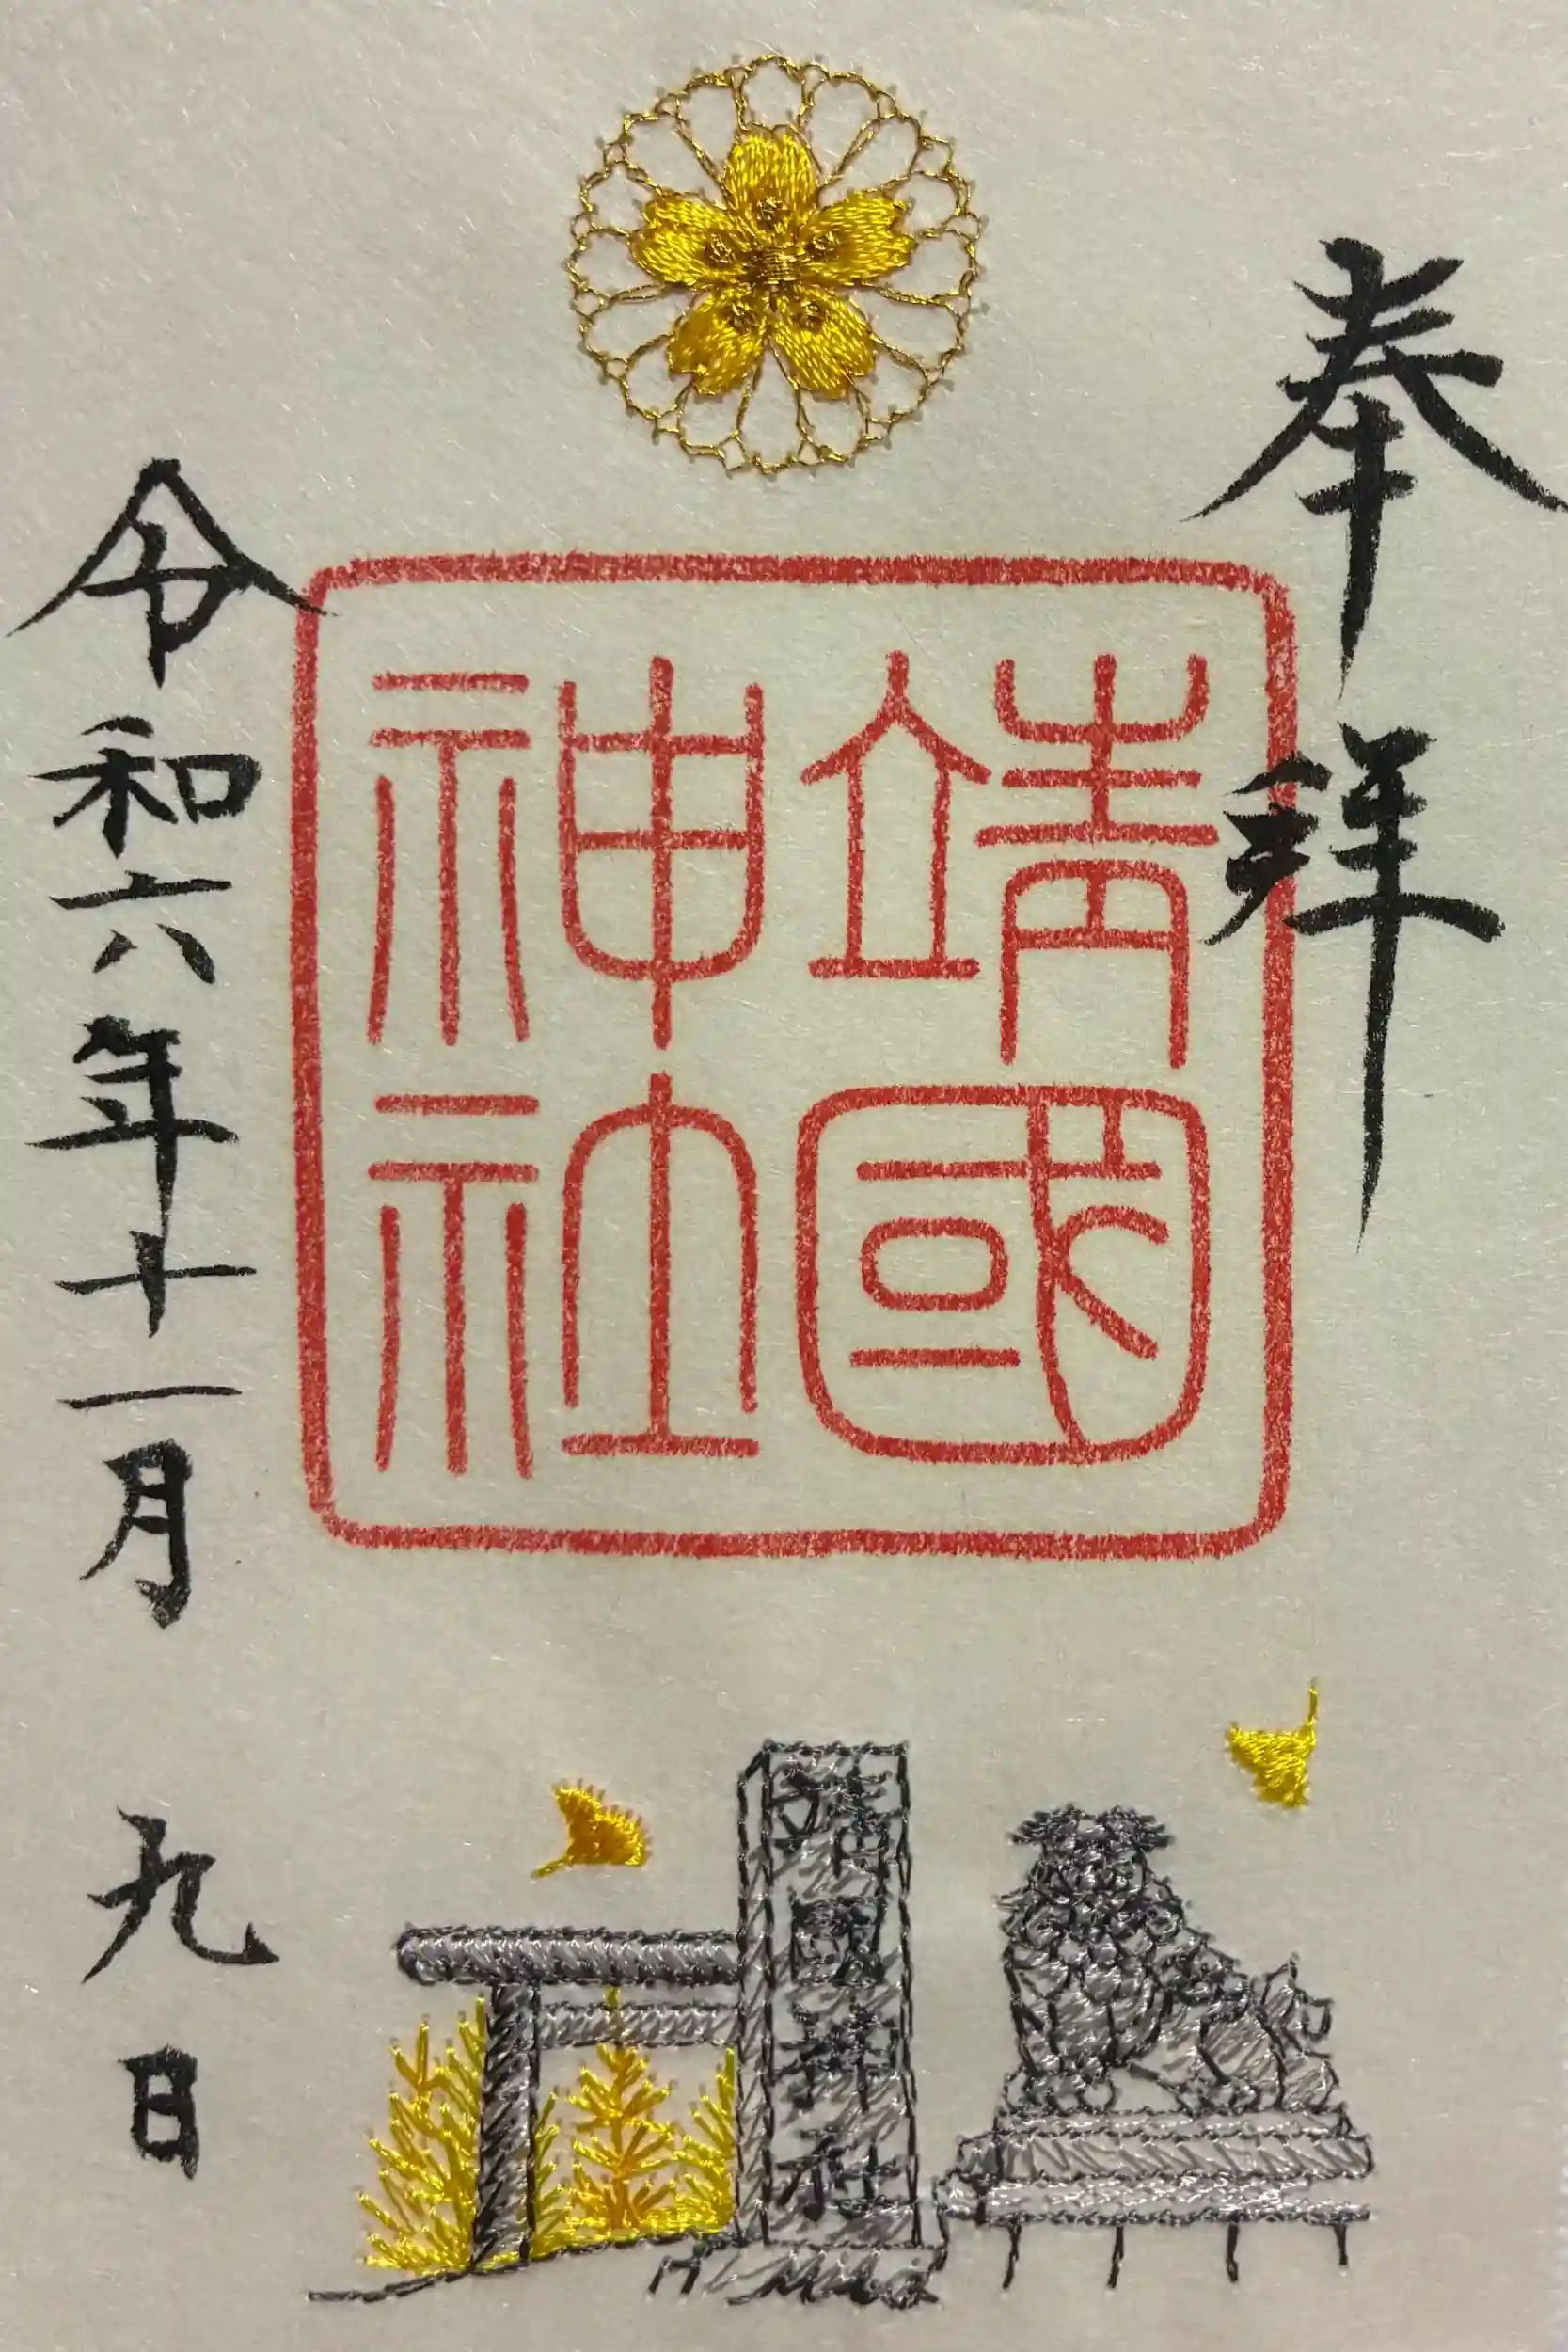 奉拝
靖國
神社
靖國神社
令和六年十一月九日